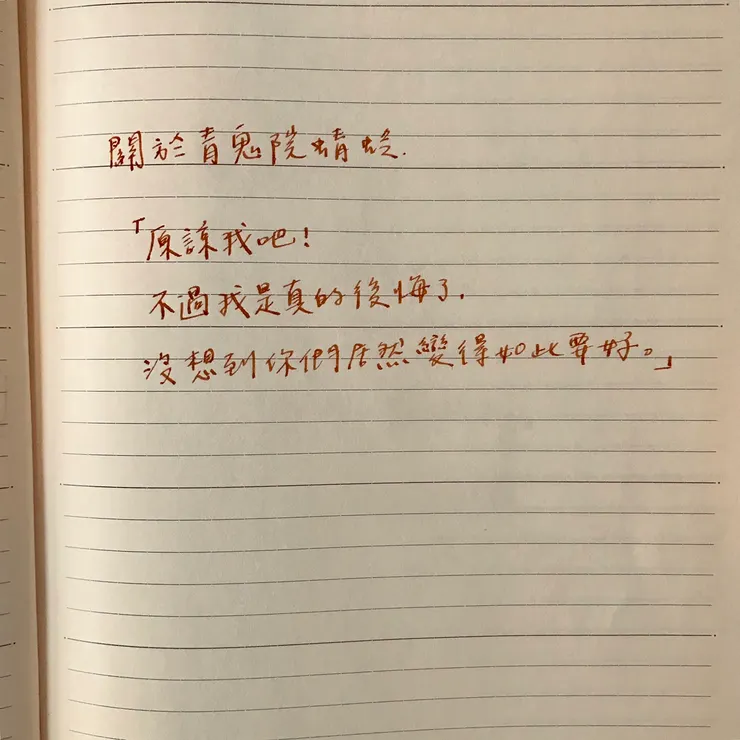 關於青鬼院蜻蛉.
「原諒我吧!
不過我是真的後悔了.
沒想到你們居然變得如此要好。」